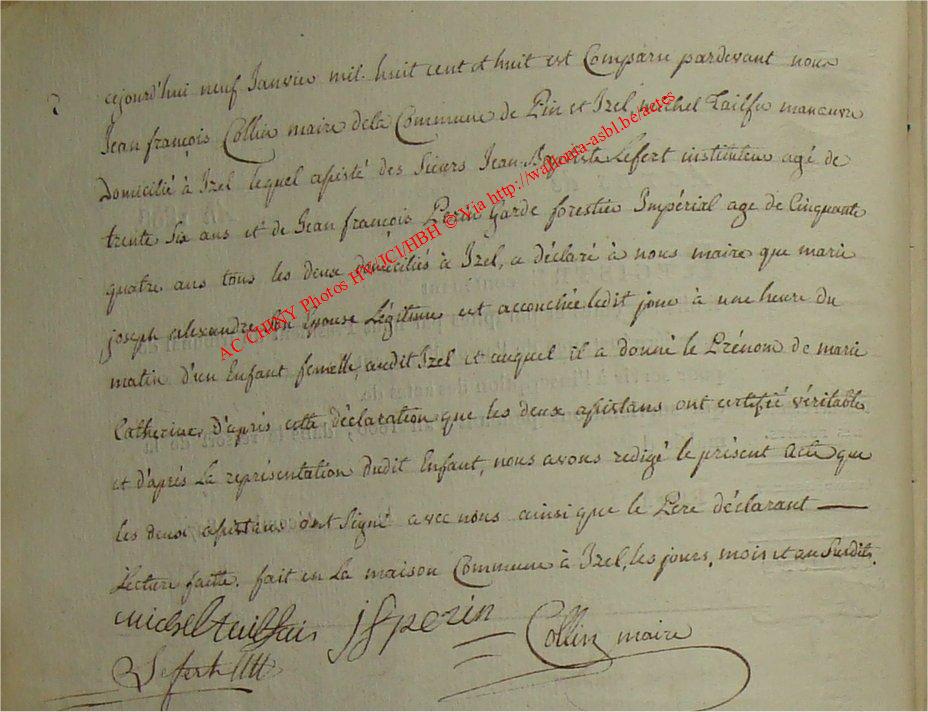 cejourd'hui neuf Janvier mil huit cent et huit est Comparu pardevant nous
Jean françois Collin maire dela Commune de Pin et Izel, michel Tailfer manœuvre
Domicilié à Izel lequel assisté des Sieurs Jean Baptiste Lefert instituteur agé de
trente Six ans et de Jean françois Perin Garde forestier Impérial age de Cinquante
quatre ans tous les deux domiciliés à Izel, a déclaré à nous maire que marie
joseph alexandre Son Epouse Légitime est accouchée ledit jour à une heure du
matin d'un Enfant femelle, audit Izel et auquel il a donné le Prénom de marie
Catherine, D'après cette déclaration que les deux assistans ont certifié véritable
et d'après La représentation dudit Enfant, nous avons redigé le présent acte que
les deux assistans ont Signé avec nous ainsi que le Pere déclarant
Lecture faitte. fait en La maison Commune à Izel, les jours, mois et an Susdits.
michel jfperin Collin maire
Lefert
AC CHINY Photos HV/JCI/HBH © Via http://wallonia-asbl.be/actes